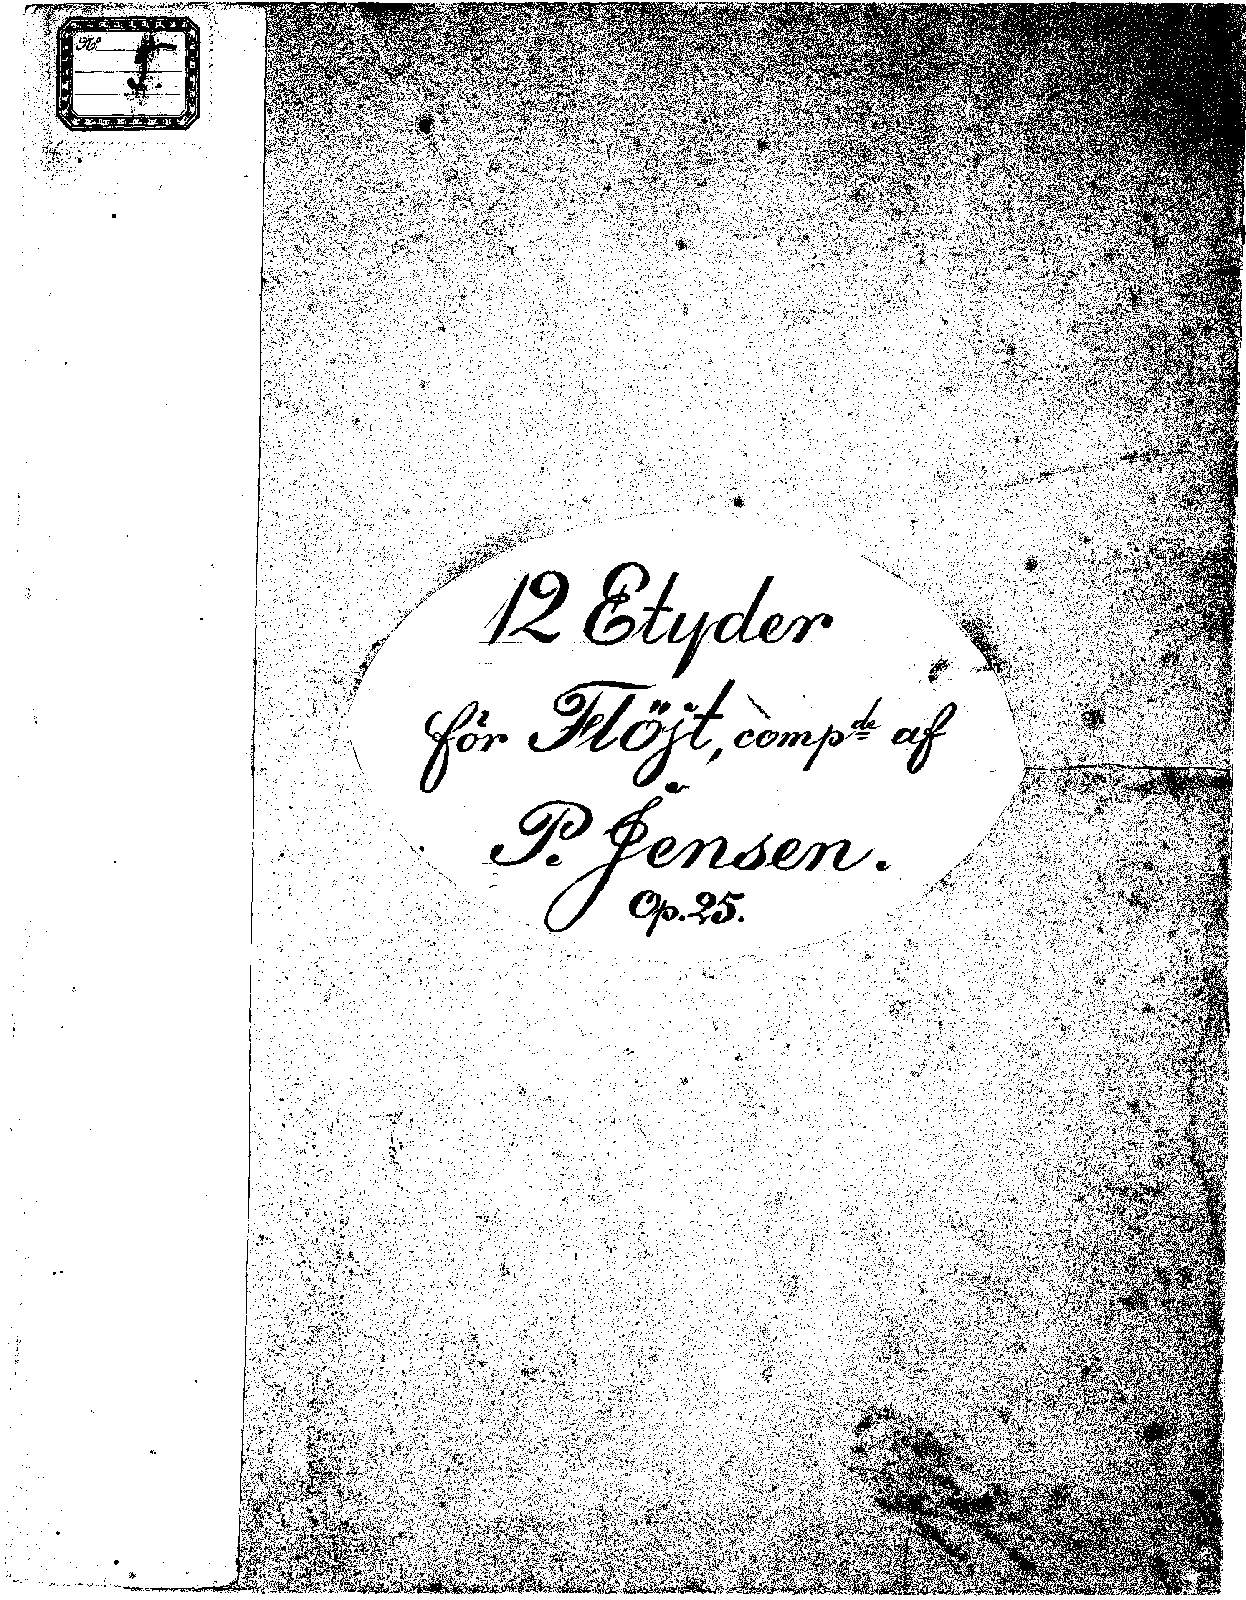 12 Etyder
för Flöjt, comp<sup>de</sup> af
P. Jensen.
Op. 25.